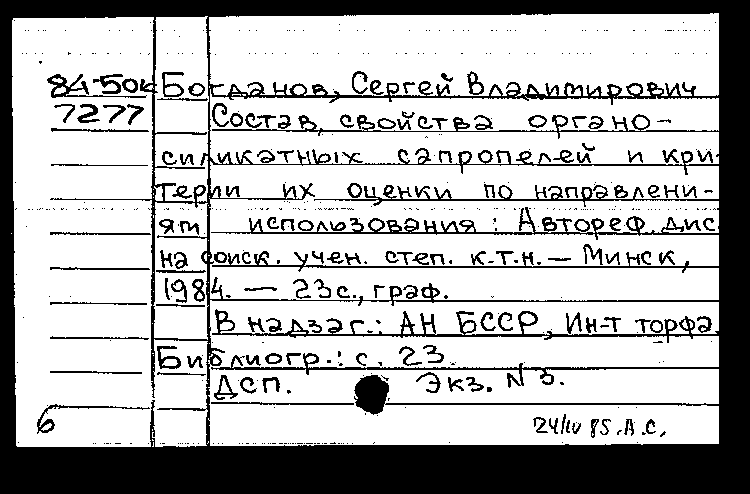 84-50к Богданов, Сергей Владимирович
7277 Состав, свойства органо-
силикатных сапропелей и кри-
терии их оценки по направлени-
ям использования : Автореф. дис.
на соиск. учен. степ. к.т.н. — Минск,
1984. — 23 с., граф.
В надзаг.: АН БССР, Ин-т торфа.
Библиогр.: с. 23.
ДСП. Экз. N 3.
6 24/IV 85. А.С.